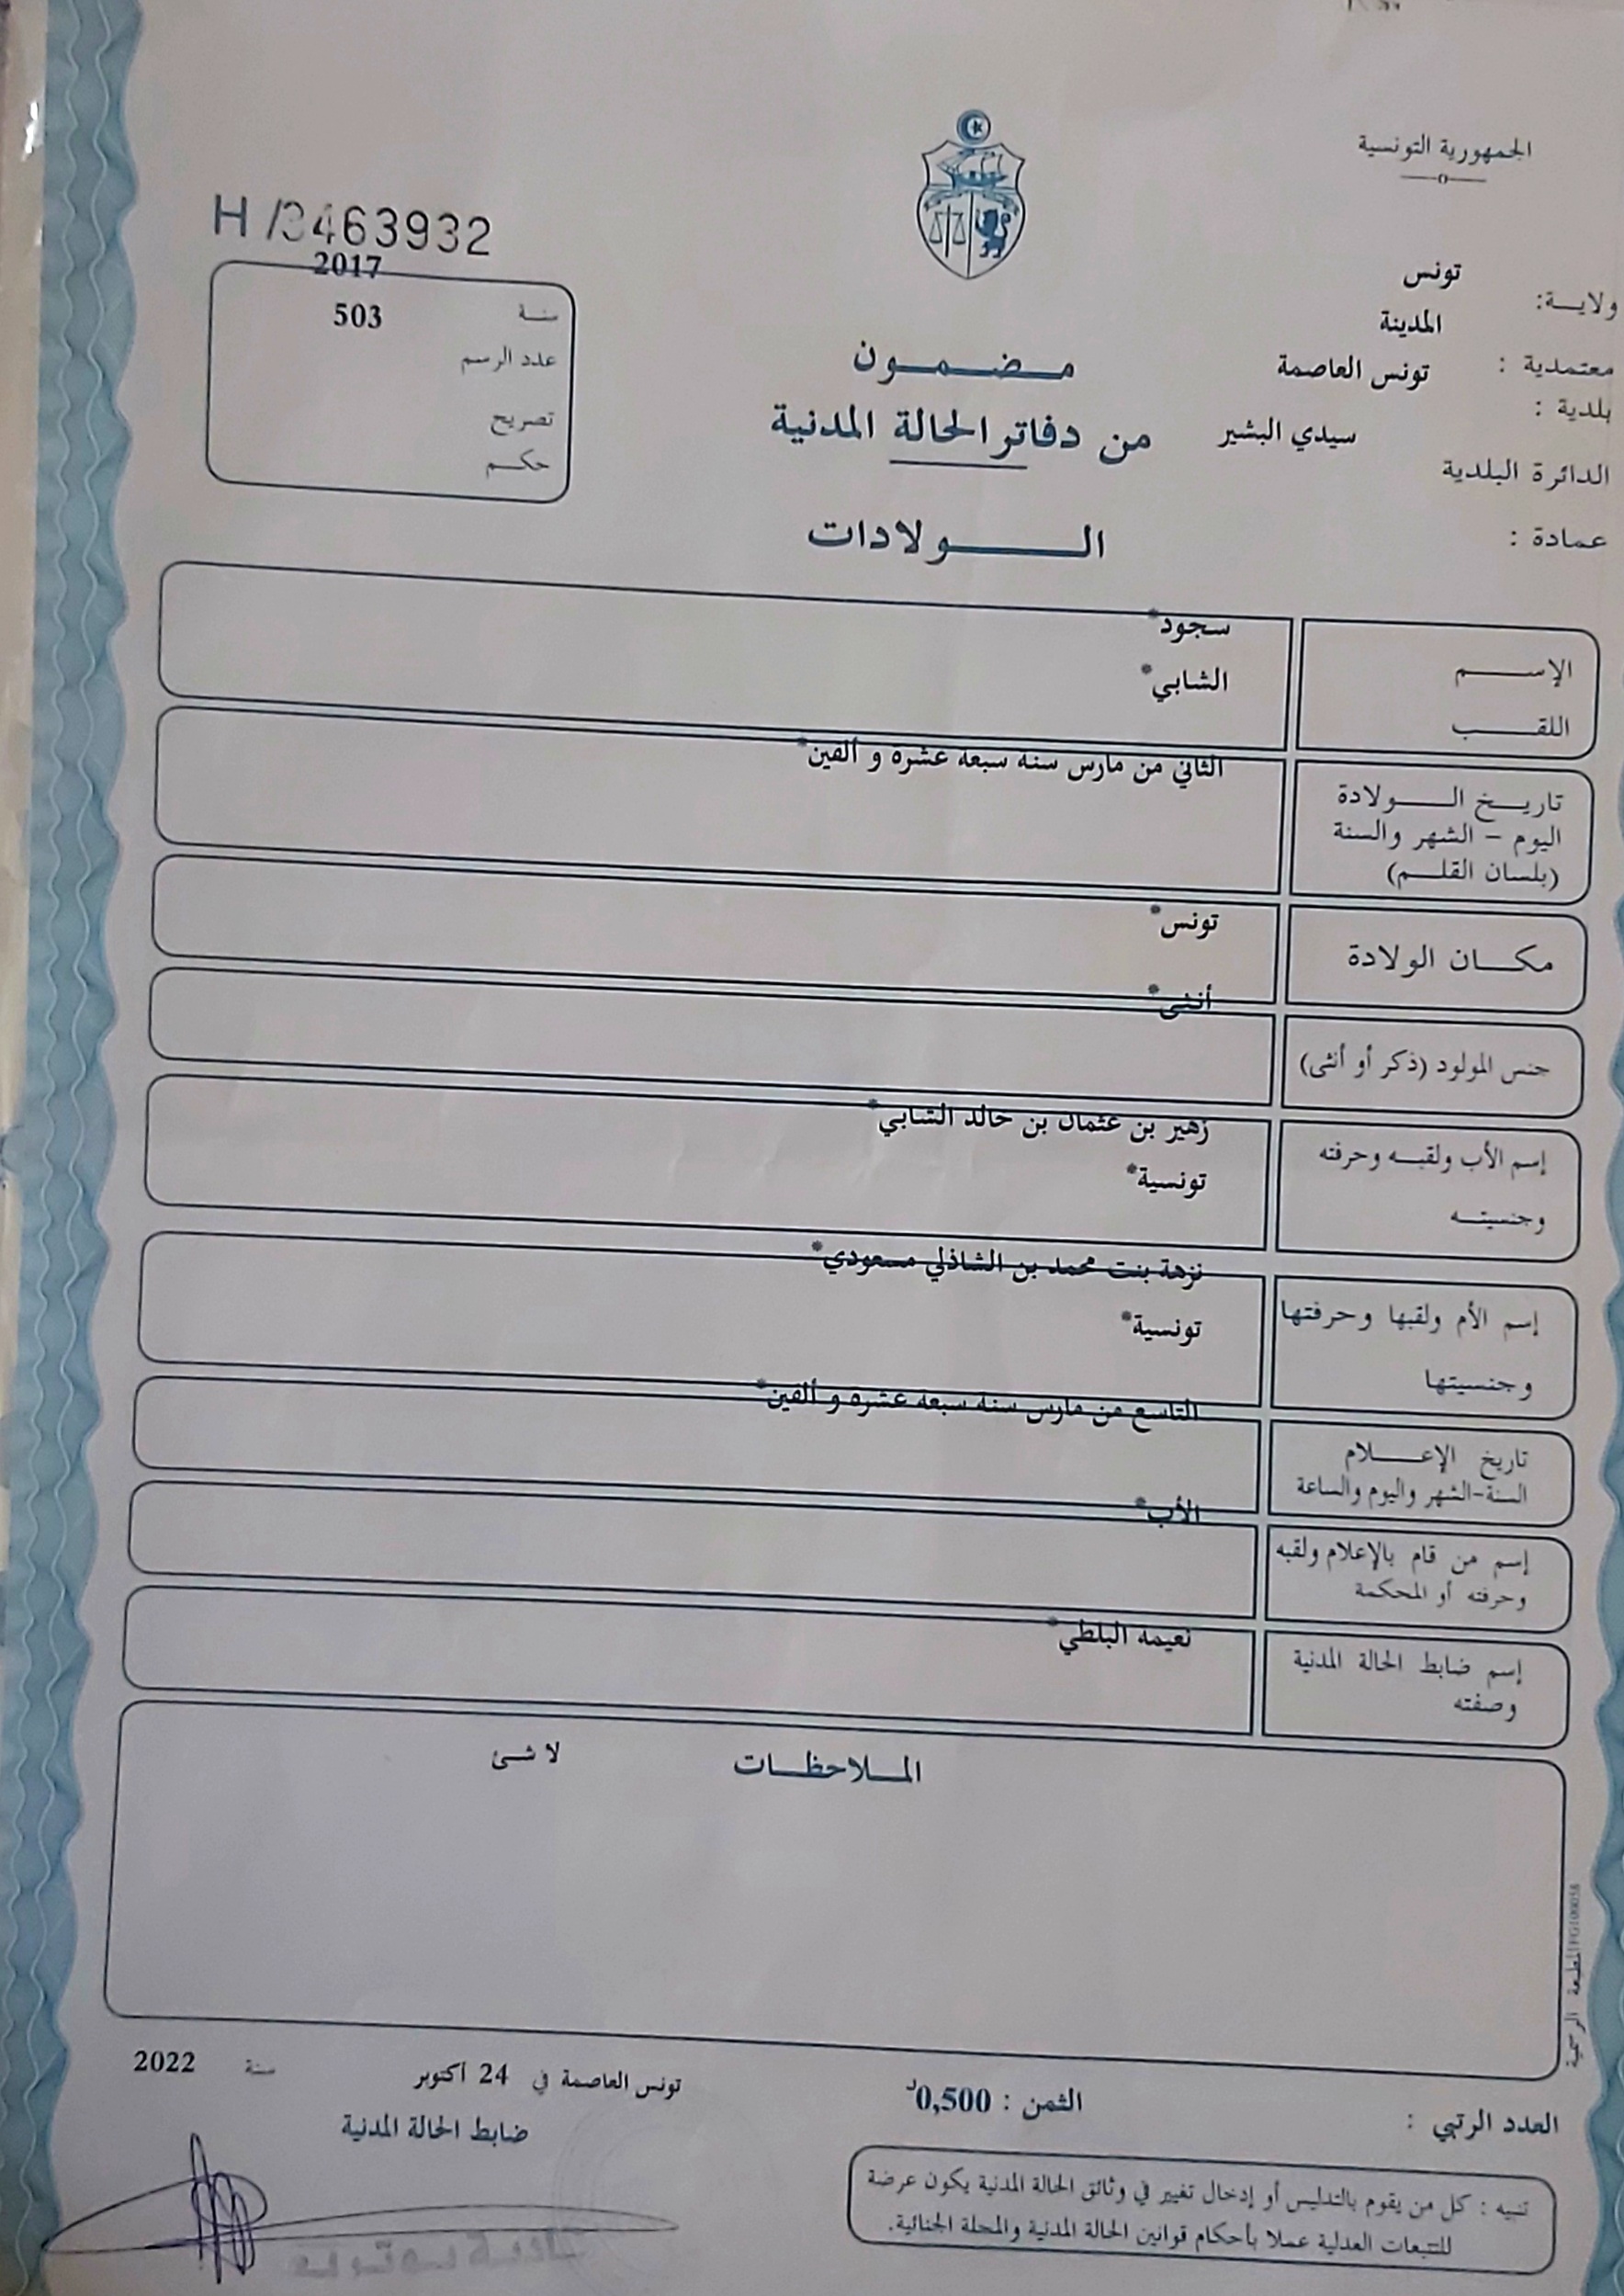 الجمهورية التونسية
ولايـــة: تونس
معتمدية : المدينة
بلدية : تونس العاصمة
الدائرة البلدية سيدي البشير
عمادة :
H /3463932
سنـة 2017
عدد الرسم 503
تصريح
حكــم
مـــضـــمـــون
من دفاتر الحالة المدنية
الـــــولادات
الإســـــم سجود*
اللقـــــب الشابي*
تاريــخ الـــــولادة
اليوم – الشهر والسنة
(بلسان القلــم)
الثاني من مارس سنة سبعة عشرة و ألفين*
مكـــان الولادة تونس*
جنس المولود (ذكر أو أنثى) أنثى*
إسم الأب ولقبــه وحرفته زهير بن عثمان بن خالد الشابي*
وجنسيتــه تونسية*
إسم الأم ولقبها وحرفتها نزهة بنت محمد بن الشاذلي مسعودي*
وجنسيتها تونسية*
تاريخ الإعـــــلام
السنة-الشهر واليوم والساعة
التاسع من مارس سنة سبعة عشرة و ألفين*
إسم من قام بالإعلام ولقبه
وحرفته أو المحكمة
الأب*
إسم ضابط الحالة المدنية
وصفته
نعيمة البلطي*
المــلاحظــات لا شئ
المطبعة الرسمية
تونس العاصمة في 24 اكتوبر سنة 2022
ضابط الحالة المدنية
العدد الرتبي :
الثمن : 0,500د
تنبيه : كل من يقوم بالتدليس أو إدخال تغيير في وثائق الحالة المدنية يكون عرضة
للتتبعات العدلية عملا بأحكام قوانين الحالة المدنية والمجلة الجنائية.